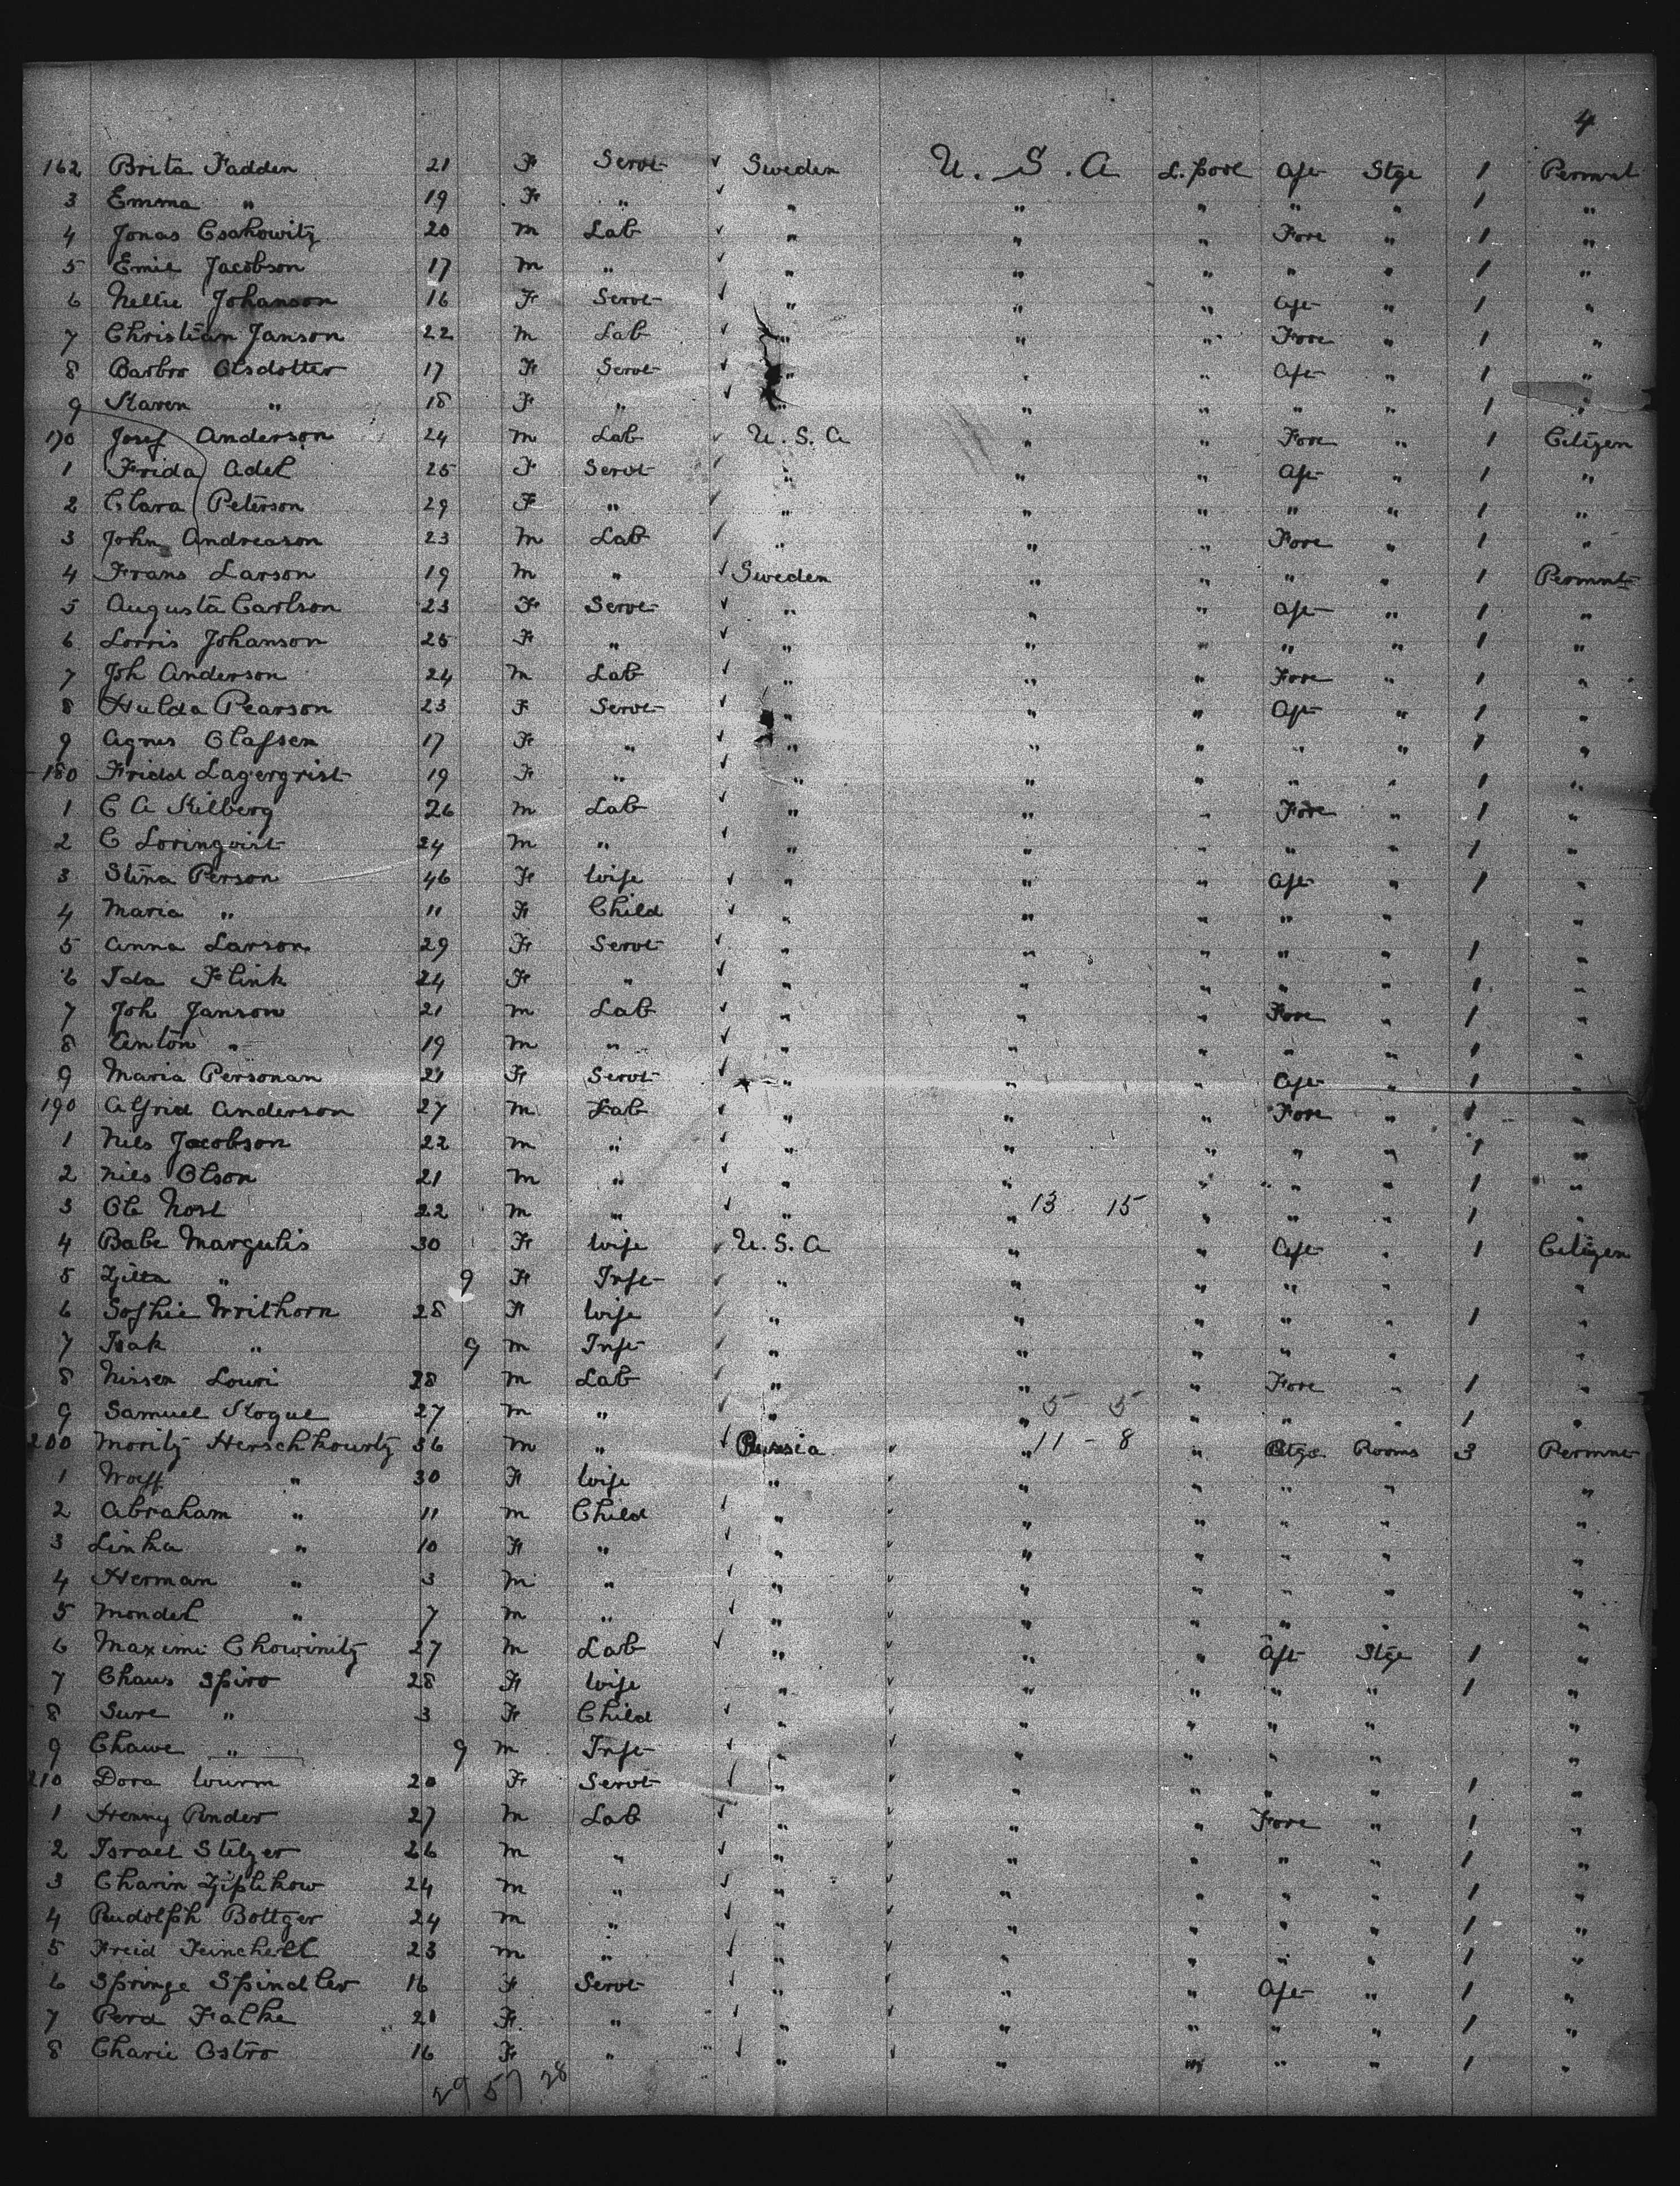 4
162 Brita Fadden 21 F Servt Sweden U. S. A L. pool Aft Stge 1 Permnt
3 Emma " 19 F " " " " " " 1 "
4 Jonas Csahowitz 20 m Lab " " " Fore " 1 "
5 Emil Jacobson 17 m " " " " " " 1 "
6 Nellie Johanson 16 F Servt " " " Aft " 1 "
7 Christian Janson 22 m Lab " " " Fore " 1 "
8 Barbro Olsdotter 17 F Servt " " " Aft " 1 "
9 Karen " 18 F " " " " " " 1 "
170 Josef Anderson 24 m Lab U. S. A " " Fore " 1 Citizen
1 Frida Adel 25 F Servt " " " Aft " 1 "
2 Clara Peterson 29 F " " " " " " 1 "
3 John Andreason 23 m Lab " " " Fore " 1 "
4 Frans Larson 19 m " Sweden " " " " 1 Permnt
5 Augusta Carlson 23 F Servt " " " Aft " 1 "
6 Lorris Johanson 25 F " " " " " " 1 "
7 Joh Anderson 24 m Lab " " " Fore " 1 "
8 Hulda Pearson 23 F Servt " " " Aft " 1 "
9 Agnes Olafsen 17 F " " " " " " 1 "
180 Frida Lagerqrist 19 F " " " " " " 1 "
1 C A Kilberg 26 m Lab " " " Fore " 1 "
2 C Lorinqvist 24 m " " " " " " 1 "
3 Stina Person 46 F Wife " " " Aft " 1 "
4 Maria " 11 F Child " " " " " "
5 Anna Larson 29 F Servt " " " " " 1 "
6 Ida Flink 24 F " " " " " " 1 "
7 Joh Janson 21 m Lab " " " Fore " 1 "
8 Anton " 19 m " " " " " " 1 "
9 Maria Personan 21 F Servt " " " Aft " 1 "
190 Alfrid Anderson 27 m Lab " " " Fore " 1 "
1 Nels Jacobson 22 m " " " " " " 1 "
2 Nils Olson 21 m " " " " " " 1 "
3 Ole Nost 22 m " " " 13 15 " " " 1 "
4 Babe Margulis 30 F Wife U. S. A " " Aft " 1 Citizen
5 " 9 F Inft " " " " " "
6 Sophie Writhorn 28 F Wife " " " " " 1 "
7 Isak " 9 m Inft " " " " " "
8 Nissen Louri 28 m Lab " " " Fore " 1 "
9 Samuel Kogul 27 m " " " 5 5 " " " 1 "
200 Moritz Herschhourtz 36 m " Russia " 11 - 8 " Rooms 3 Permnt
1 " 30 F Wife " " " " " "
2 Abraham " 11 m Child " " " " " "
3 Linka " 10 F " " " " " " "
4 Herman " 3 m " " " " " " "
5 Mondel " 7 m " " " " " " "
6 Maximi Chowinitz 27 m Lab " " " Aft Stge 1 "
7 Chaus Spiro 28 F Wife " " " " " 1 "
8 Sure " 3 F Child " " " " " "
9 Chawe " 9 m Inft " " " " " "
210 Dora Wurm 20 F Servt " " " " " 1 "
1 Henny Pinder 27 m Lab " " " Fore " 1 "
2 Israel Stelzer 26 m " " " " " " 1 "
3 Charin Ziplikow 24 m " " " " " " 1 "
4 Rudolph Bottger 24 m " " " " " " 1 "
5 Freid Feinchell 23 m " " " " " " 1 "
6 Springe Spindler 16 F Servt " " " Aft " 1 "
7 Perd Falke 21 F " " " " " " 1 "
8 Charie Ostro 16 F " " " " " " 1 "
29 57 28